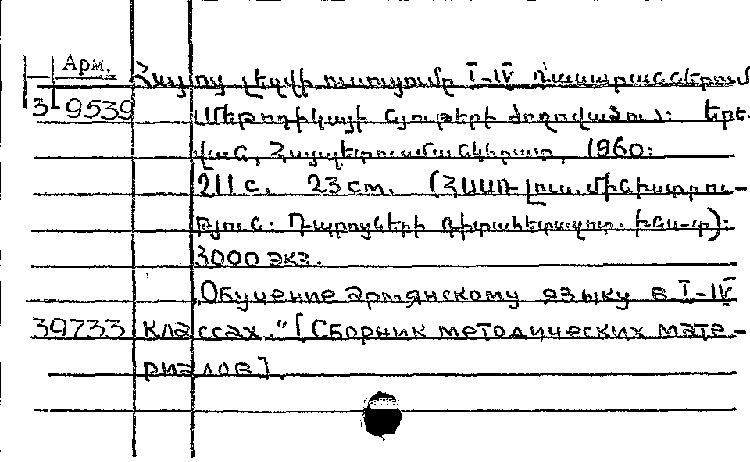 Арм.
Հայոց լեզվի ուսուցումը I-IV դասարաններում
3 9539 Մեթոդիկայի նյութերի ժողովածու: Երե-
վան, Հայպետուսմանկհրատ, 1960:
211 с. 23 см. (ՀՍՍՌ լուս. մինիստրու-
թյուն. Դպրոցների գիտահետազոտ. ինս-տ):
3000 экз.
„Обучение армянскому языку в I-IV
39733 классах." [Сборник методических мате-
риалов].